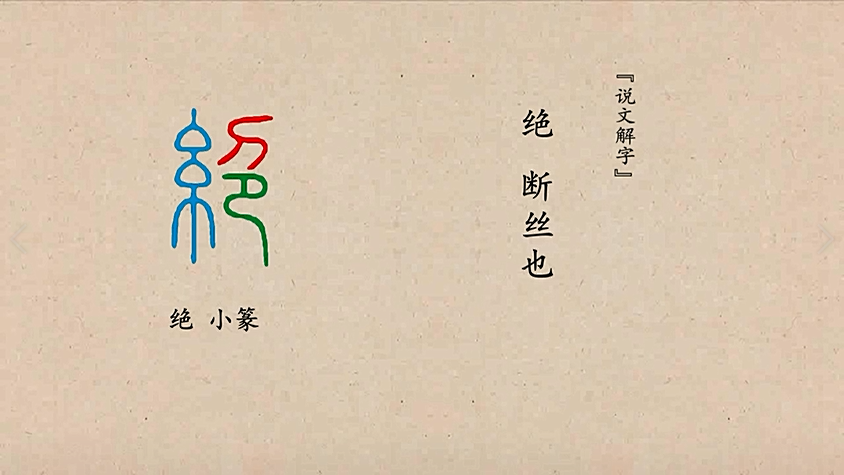 『说文解字』
绝 断丝也
絕
绝 小篆